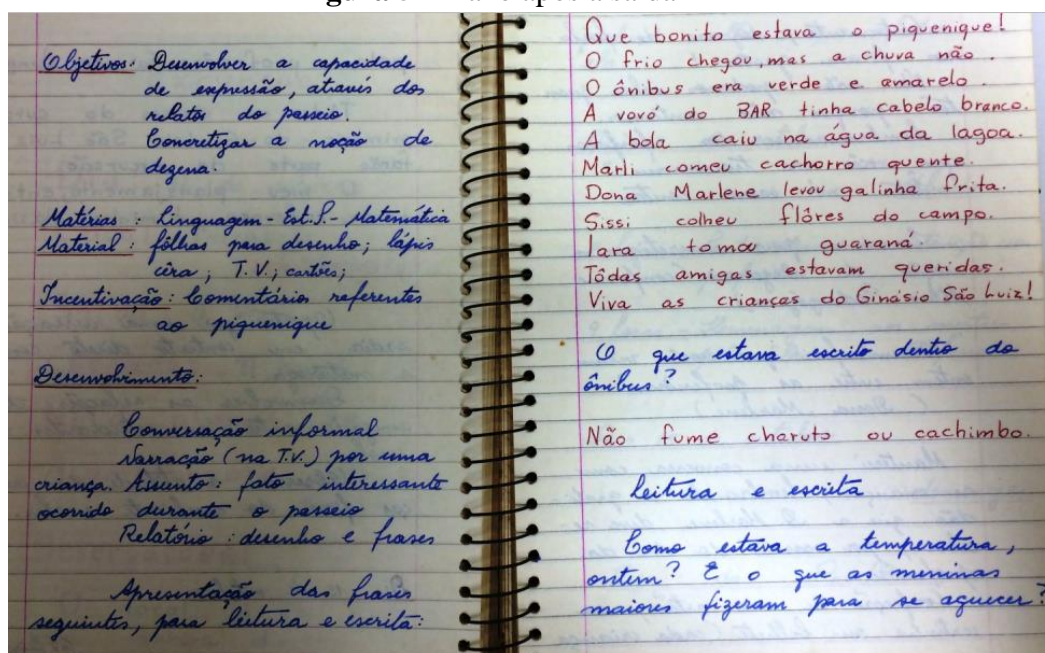 Objetivos: Desenvolver a capacidade
de expressão, através dos
relatos do passeio.
Concretizar a noção de
dezena.
Matérias: Linguagem - Est. S. - Matemática
Material: fôlhas para desenho; lápis
cêra; T.V.; cartões;
Incentivação: Comentários referentes
ao piquenique
Desenvolvimento:
Conversação informal
Narração (na T.V.) por uma
criança. Assunto: fato interessante
ocorrido durante o passeio
Relatório: desenho e frases
Apresentação das frases
seguintes, para leitura e escrita:
Que bonito estava o piquenique!
O frio chegou, mas a chuva não.
O ônibus era verde e amarelo.
A vovó do BAR tinha cabelo branco.
A bola caiu na água da lagoa.
Marli comeu cachorro quente.
Dona Marlene levou galinha frita.
Sissi colheu flôres do campo.
Iara tomou guaraná.
Tôdas amigas estavam queridas.
Viva as crianças do Ginásio São Luiz!
O que estava escrito dentro do
ônibus?
Não fume charuto ou cachimbo.
Leitura e escrita
Como estava a temperatura,
ontem? E o que as meninas
maiores fizeram para se aquecer?